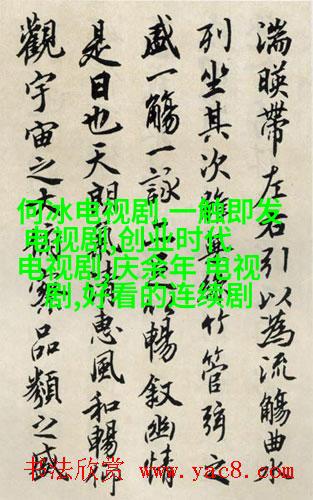 湍暎帶左右引以為流觴曲
列坐其次竹管弦之
盛一觴一詠暢敘幽情
是日也天朗惠風和暢仰
觀宇宙之大俯察品類之盛
何冰电视剧,一触即发
电视剧,创业时代
电视剧,庆余年 电视
剧,好看的连续剧
书法欣赏 www.yac8.com